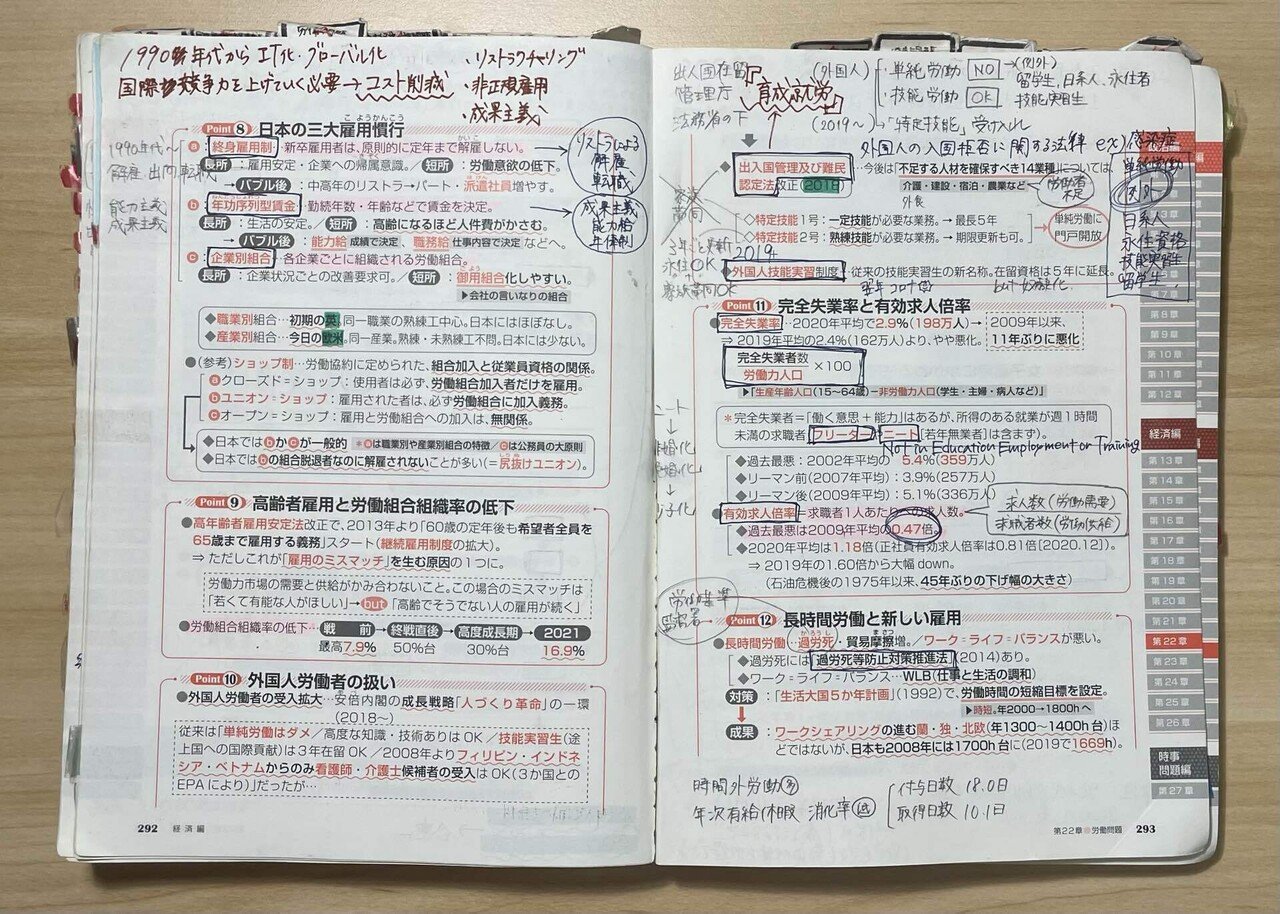 1990年代からIT化・グローバル化
国際競争力を上げていく必要→コスト削減
・リストラクチャリング
・非正規雇用
・成果主義
Point 8 日本の三大雇用慣行
こようかんこう
ⓐ 終身雇用制…新卒雇用者は、原則的に定年まで解雇しない。
かいこ
長所：雇用安定・企業への帰属意識。／短所：労働意欲の低下。
→バブル後：中高年のリストラ→パート・派遣社員増やす。
ⓑ 年功序列型賃金…勤続年数・年齢などで賃金を決定。
長所：生活の安定。／短所：高齢になるほど人件費がかさむ。
→バブル後：能力給 成績で決定、職務給 仕事内容で決定 などへ。
ⓒ 企業別組合…各企業ごとに組織される労働組合。
長所：企業状況ごとの改善要求可。／短所：御用組合化しやすい。
▶会社の言いなりの組合
1990年代〜
解雇 出向 転職
能力主義
成果主義
リストラによる
解雇
転職
成果主義
能力給
年俸制
◆職業別組合…初期の英。同一職業の熟練工中心。日本にはほぼなし。
◆産業別組合…今日の欧米。同一産業。熟練・未熟練工不問。日本には少ない。
●（参考）ショップ制…労働協約に定められた、組合加入と従業員資格の関係。
ⓐクローズド＝ショップ：使用者は必ず、労働組合加入者だけを雇用。
ⓑユニオン＝ショップ：雇用された者は、必ず労働組合に加入義務。
ⓒオープン＝ショップ：雇用と労働組合への加入は、無関係。
◆日本ではⓑかⓒが一般的 ＊ⓐは職業別や産業別組合の特徴／ⓒは公務員の大原則
◆日本ではⓑの組合脱退者なのに解雇されないことが多い（＝尻抜けユニオン）。
Point 9 高齢者雇用と労働組合組織率の低下
●高年齢者雇用安定法改正で、2013年より「60歳の定年後も希望者全員を
65歳まで雇用する義務」スタート（継続雇用制度の拡大）。
⇒ ただしこれが「雇用のミスマッチ」を生む原因の１つに。
労働力市場の需要と供給がかみ合わないこと。この場合のミスマッチは
「若くて有能な人がほしい」→but「高齢でそうでない人の雇用が続く」
●労働組合組織率の低下…戦前→終戦直後→高度成長期→2021
最高7.9% 50%台 30%台 16.9%
Point 10 外国人労働者の扱い
●外国人労働者の受入拡大…安倍内閣の成長戦略「人づくり革命」の一環
（2018〜）
従来は「単純労働はダメ／高度な知識・技術ありはOK／技能実習生（途
上国への国際貢献）は３年在留OK／2008年よりフィリピン・インドネ
シア・ベトナムからのみ看護師・介護士候補者の受入はOK（3か国との
EPAにより）」だったが…
292 経済編
出入国在留
管理庁
法務省の下
『育成就労』
（外国人）
・単純労働 NO →（例外）
留学生、日系人、永住者
技能実習生
・技能労働 OK
（2019〜）→「特定技能」受け入れ
外国人の入国拒否に関する法律 ex）感染症
◆出入国管理及び難民
認定法改正（2018）…今後は「不足する人材を確保すべき14業種」については、
介護・建設・宿泊・農業など
外食
労働者
不足
◇特定技能１号：一定技能が必要な業務。→ 最長５年
◇特定技能２号：熟練技能が必要な業務。→ 期限更新も可。
単純労働に
門戸開放
単純労働
例外
日系人
永住資格
技能実習生
留学生
家族
帯同
永住OK
家族帯同OK
2019年
◆外国人技能実習制度…従来の技能実習生の新名称。在留資格は５年に延長。
翌年コロナ
Point 11 完全失業率と有効求人倍率
●完全失業率…2020年平均で2.9%（198万人）→
⇒ 2019年平均の2.4%（162万人）より、やや悪化。
2009年以来、
11年ぶりに悪化
完全失業者数
労働力人口
×100
▶「生産年齢人口（15〜64歳）－非労働力人口（学生・主婦・病人など）」
＊完全失業者＝「働く意思＋能力」はあるが、所得のある就業が週１時間
未満の求職者（フリーター・ニート［若年無業者］は含まず）。
Not in Education Employment or Training
◆過去最悪：2002年平均の 5.4%（359万人）
◆リーマン前（2007年平均）：3.9%（257万人）
◆リーマン後（2009年平均）：5.1%（336万人）
ニート
●有効求人倍率＝求職者１人あたりの求人数。
求人数（労働需要）
求職者数（労働供給）
◆過去最悪は2009年平均の0.47倍。
◆2020年平均は1.18倍（正社員有効求人倍率は0.81倍［2020.12］）。
⇒ 2019年の1.60倍から大幅down。
（石油危機後の1975年以来、45年ぶりの下げ幅の大きさ）
労働基準
監督署
Point 12 長時間労働と新しい雇用
●長時間労働…過労死・貿易摩擦増。／ワーク＝ライフ＝バランスが悪い。
かろうし
まさつ
◆過労死には過労死等防止対策推進法（2014）あり。
◆ワーク＝ライフ＝バランス…WLB（仕事と生活の調和）
対策：「生活大国５か年計画」（1992）で、労働時間の短縮目標を設定。
▶時短。年2000→1800hへ
成果：ワークシェアリングの進む蘭・独・北欧（年1300〜1400h台）ほ
どではないが、日本も2008年には1700h台に（2019で1669h）。
時間外労働 多
年次有給休暇 消化率 低
付与日数 18.0日
取得日数 10.1日
第22章 ● 労働問題 293
第８章
第９章
第10章
第11章
第12章
経済編
第13章
第14章
第15章
第16章
第17章
第18章
第19章
第20章
第21章
第22章
第23章
第24章
第25章
第26章
時事
問題編
第27章